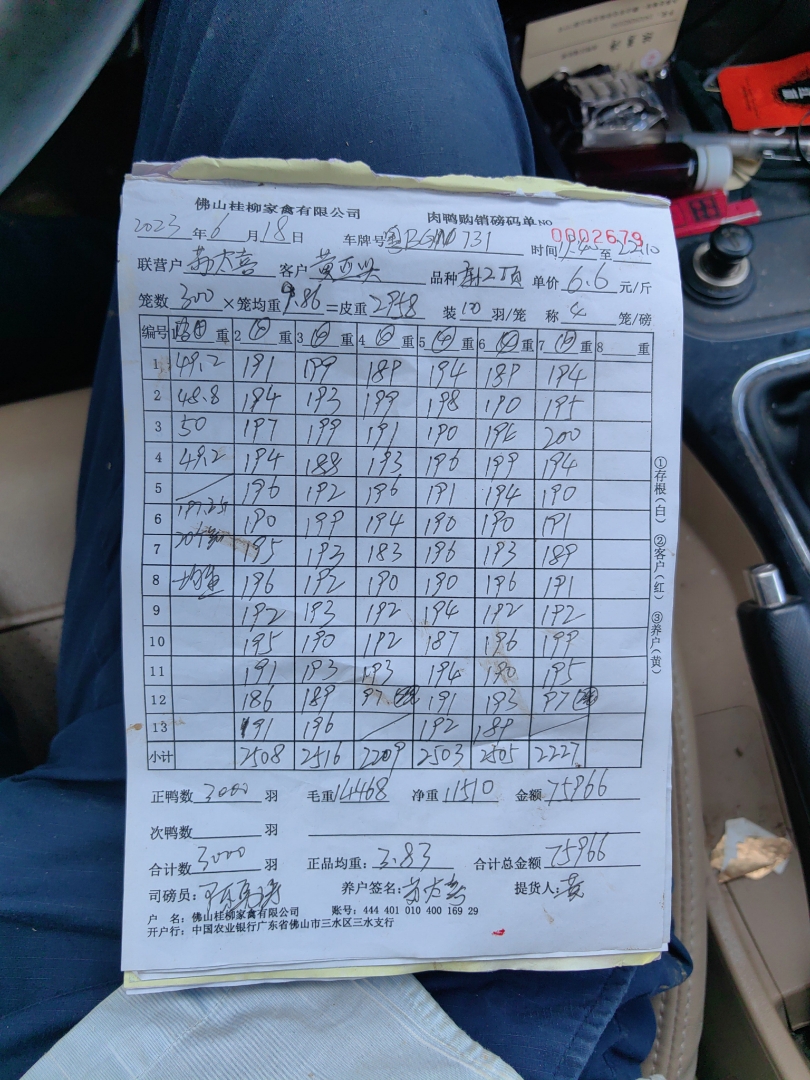 佛山桂柳家禽有限公司 肉鸭购销磅码单 NO 0002679
2023年6月18日 车牌号 731 时间 至 22:10
联营户 客户 黄 品种 单价 6.6 元/斤
笼数 300 ×笼均重 9.86 =皮重 2958 装 10 羽/笼 称 4 笼/磅
编号 1 重 2 ④ 重 3 ④ 重 4 ④ 重 5 ④ 重 6 ④ 重 7 ④ 重 8 重
1 49.2 191 199 189 194 189 194
2 48.8 194 193 199 198 190 195
3 50 197 199 191 190 196 200
4 49.2 194 188 193 196 199 194
5 196 192 196 191 194 190
6 197.2 190 199 194 190 190 191
7 195 193 183 196 193 189
8 均重 196 192 190 190 196 191
9 192 193 192 194 192 192
10 195 190 192 187 196 199
11 191 193 193 194 190 195
12 186 189 97 191 193 97
13 191 196 192 189
小计 2508 2516 2209 2503 2505 2227
正鸭数 3000 羽 毛重 14468 净重 11510 金额 75966
次鸭数 羽
合计数 3000 羽 正品均重: 3.83 合计总金额 75966
司磅员: 养户签名: 提货人: 黄
户 名: 佛山桂柳家禽有限公司 账号: 444 401 010 400 169 29
开户行: 中国农业银行广东省佛山市三水区三水支行
①存根(白) ②客户(红) ③养户(黄)